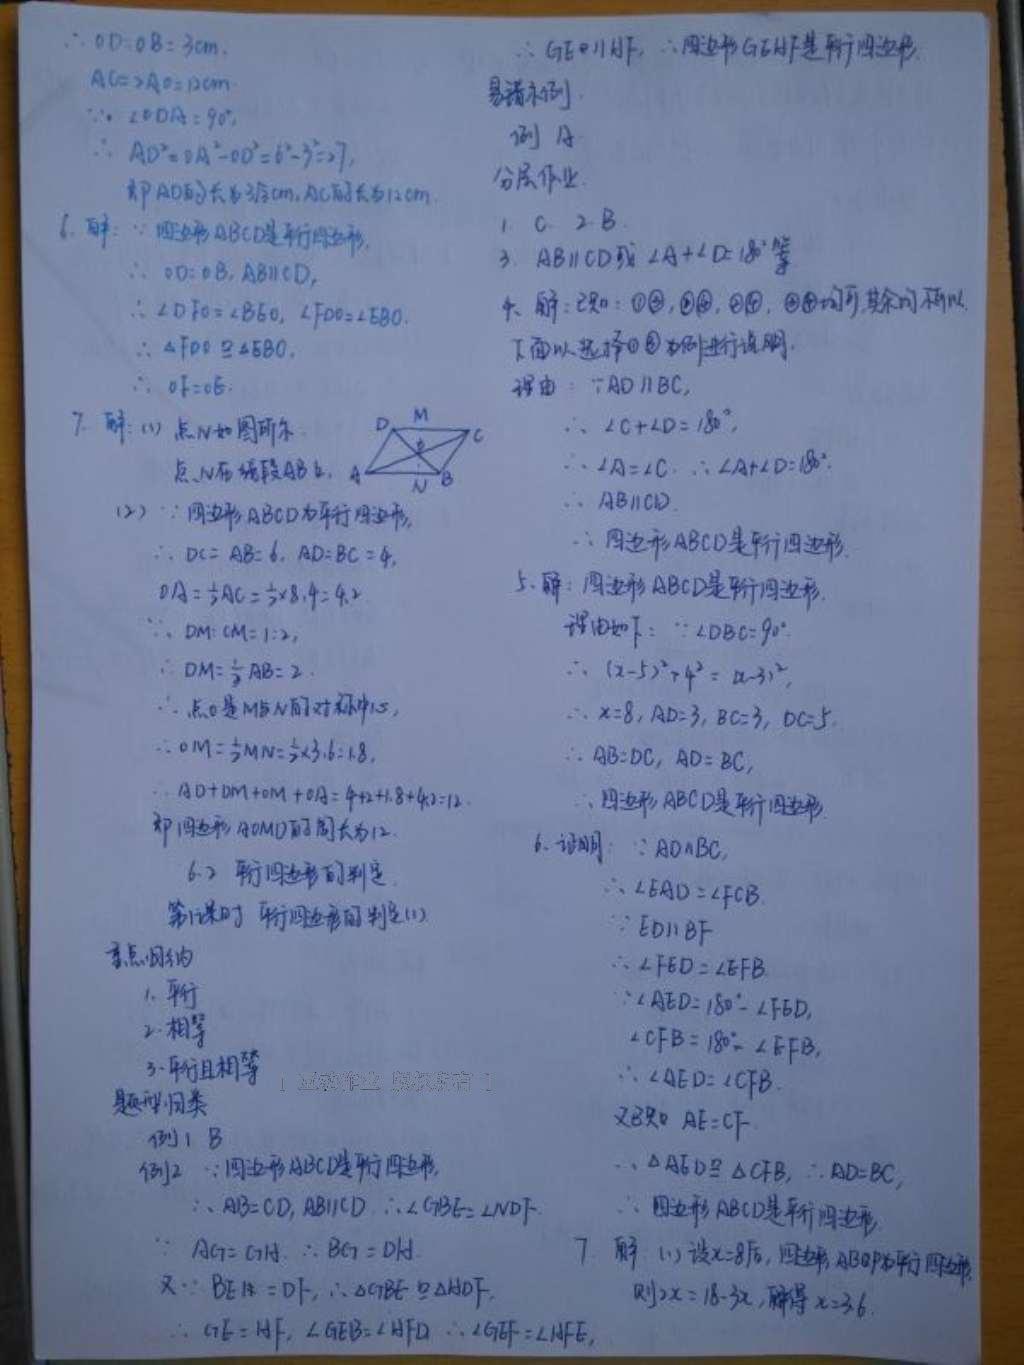 ∴ OD=OB=3cm.
AC=2AO=12cm.
∵ ∠ODA=90°,
∴ AD²=OA²-OD²=6²-3²=27,
即AD的长为3√3cm,AC的长为12cm.
6. 解: ∵ 四边形ABCD是平行四边形,
∴ OD=OB, AB∥CD,
∴ ∠DFO=∠BEO, ∠FDO=∠EBO.
∴ △FDO≌△EBO,
∴ OF=OE.
7. 解:(1) 点N如图所示.
点N在线段AB上.
D M C
O
A N B
(2) ∵ 四边形ABCD为平行四边形,
∴ DC=AB=6, AD=BC=4,
OA=½AC=½×8.4=4.2
∵ DM:CM=1:2,
∴ DM=⅓AB=2.
∵ 点O是M与N的对称中心,
∴ OM=½MN=½×3.6=1.8,
∴ AD+DM+OM+OA=4+2+1.8+4.2=12.
即四边形AOMD的周长为12.
6.2 平行四边形的判定.
第1课时 平行四边形的判定(1)
重点归纳
1. 平行
2. 相等
3. 平行且相等
题型归类
例1 B
例2 ∵四边形ABCD是平行四边形,
∴ AB=CD, AB∥CD ∴∠GBE=∠NDF.
∵ AG=CH. ∴ BG=DH.
又∵ BE = DF, ∴△GBE≌△HDF,
∴ GE=HF, ∠GEB=∠HFD ∴∠GEF=∠HFE,
∴ GE∥HF, ∴四边形GEHF是平行四边形.
易错示例.
例 A
分层作业.
1. C 2. B.
3. AB∥CD或 ∠A+∠D=180°等
4. 解:已知: 均可,其余均不可以.
下面以选择 为例进行说明.
理由: ∵AD∥BC,
∴ ∠C+∠D=180°,
∵ ∠A=∠C. ∴∠A+∠D=180°.
∴ AB∥CD.
∴ 四边形ABCD是平行四边形.
5. 解:四边形ABCD是平行四边形.
理由如下: ∵∠DBC=90°.
∴ (x-5)²+4²=(x-3)²,
∴ x=8, AD=3, BC=3, DC=5.
∴ AB=DC, AD=BC,
∴ 四边形ABCD是平行四边形.
6. 证明: ∵AD∥BC,
∴ ∠EAD=∠FCB.
∵ ED∥BF
∴ ∠FED=∠EFB.
∵ ∠AED=180°-∠FED,
∠CFB=180°-∠EFB,
∴ ∠AED=∠CFB.
又已知 AE=CF.
∴ △AED≌△CFB, ∴AD=BC,
∴ 四边形ABCD是平行四边形.
7. 解 (1)设x=8后, 四边形ABQP为平行四边形,
则2x=18-3x,解得x=3.6.